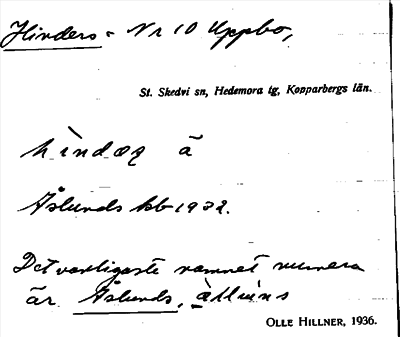 Hinders - Nr 10 Uppbo,
St. Skedvi sn, Hedemora tg, Kopparbergs län.
hìndæṣ ā
Åslunds kb 1932.
Det vanligaste namnet numera
är Åslunds, à̱slùns
OLLE HILLNER, 1936.